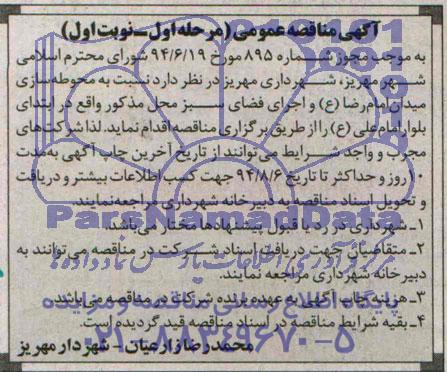 آگهی مناقصه عمومی (مرحله اول - نوبت اول)
به موجب مجوز شماره ۸۹۵ مورخ ۹۴/۶/۱۹ شورای محترم اسلامی
شهر مهریز، شهرداری مهریز در نظر دارد نسبت به محوطه‌سازی
میدان امام رضا (ع) و اجرای فضای سبز محل مذکور واقع در ابتدای
بلوار امام علی (ع) را از طریق برگزاری مناقصه اقدام نماید. لذا شرکت‌های
مجرب و واجد شرایط می‌توانند از تاریخ آخرین چاپ آگهی به مدت
۱۰ روز و حداکثر تا تاریخ ۹۴/۸/۶ جهت کسب اطلاعات بیشتر و دریافت
و تحویل اسناد مناقصه به دبیرخانه شهرداری مراجعه نمایند.
ParsNamadData
۱- شهرداری در رد یا قبول پیشنهادها مختار می‌باشد.
۲- متقاضیان جهت دریافت اسناد شرکت در مناقصه می‌توانند به
دبیرخانه شهرداری مراجعه نمایند.
۳- هزینه چاپ آگهی به عهده برنده شرکت در مناقصه می‌باشد.
۴- بقیه شرایط مناقصه در اسناد مناقصه قید گردیده است.
۰۲۱-۸۸۳۴۹۶۷۰-۵
محمدرضا زارعیان - شهردار مهریز